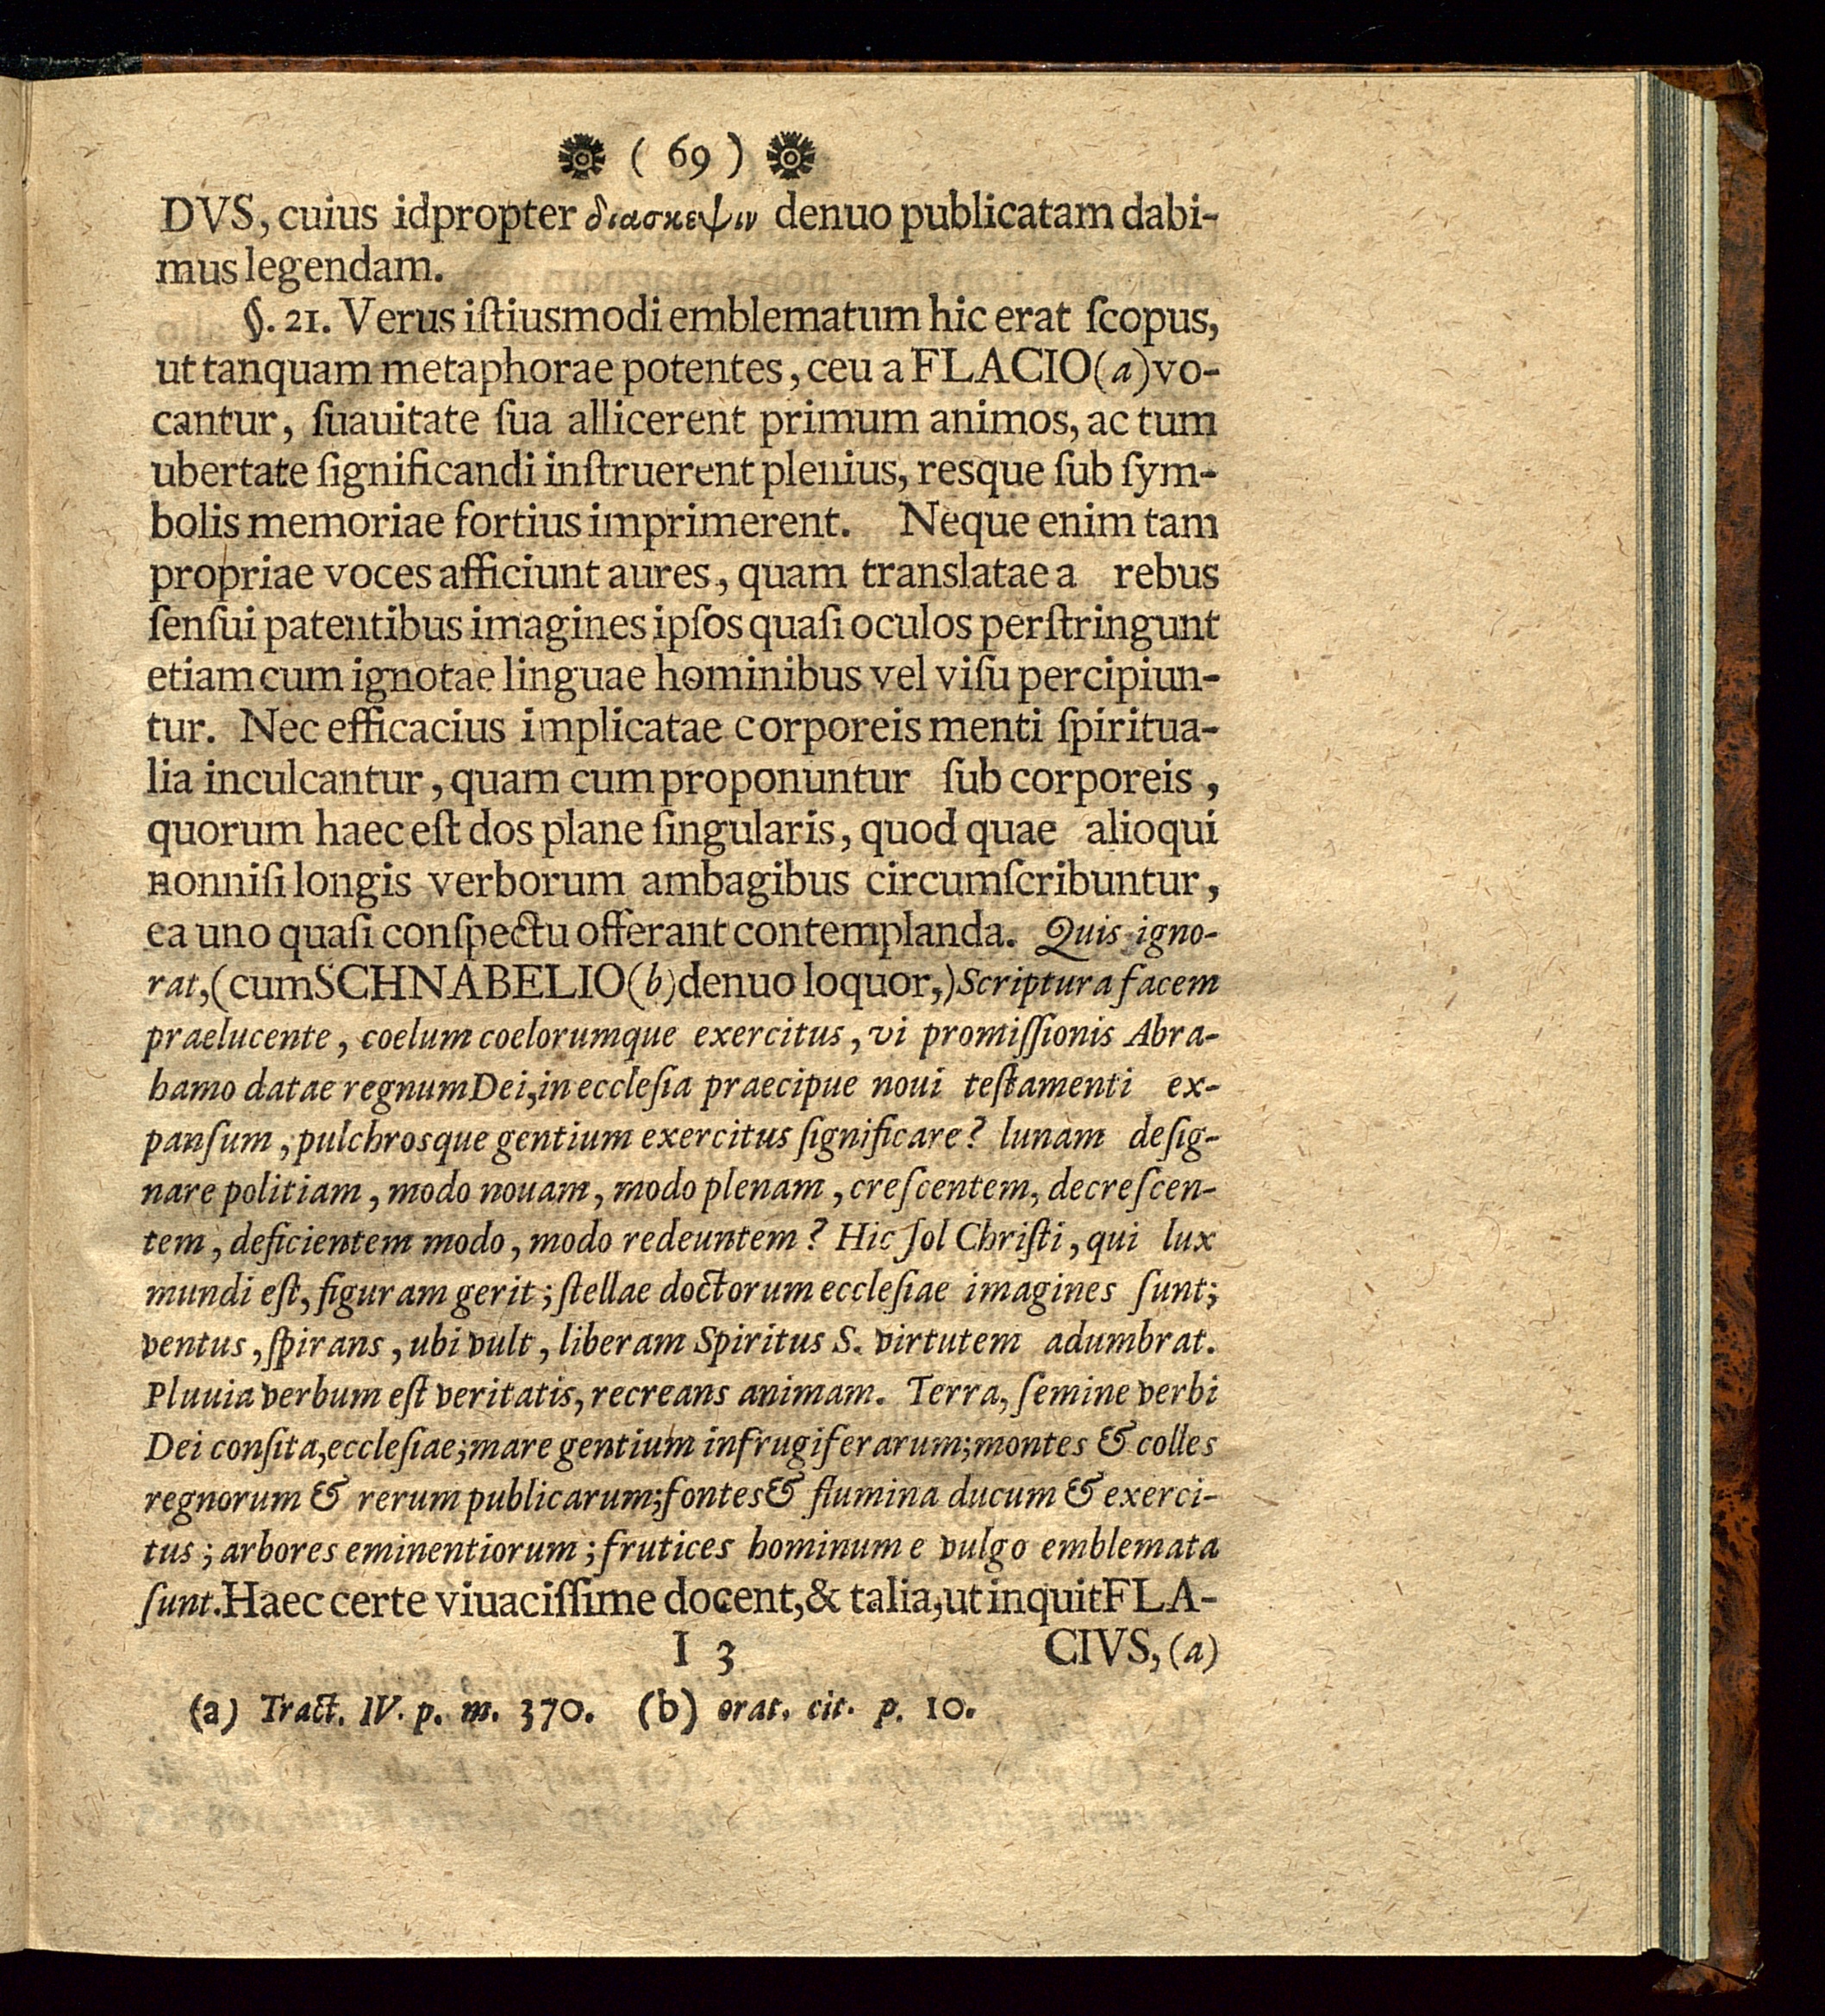 ( 69 )
DVS, cuius idpropter διασκεψιν denuo publicatam dabi-
mus legendam.
§. 21. Verus iſtiusmodi emblematum hic erat ſcopus,
ut tanquam metaphorae potentes, ceu a FLACIO (a) vo-
cantur, ſuauitate ſua allicerent primum animos, ac tum
ubertate ſignificandi inſtruerent plenius, resque ſub ſym-
bolis memoriae fortius imprimerent. Neque enim tam
propriae voces afficiunt aures, quam translatae a rebus
ſenſui patentibus imagines ipſos quaſi oculos perſtringunt
etiam cum ignotae linguae hominibus vel viſu percipiun-
tur. Nec efficacius implicatae corporeis menti ſpiritua-
lia inculcantur, quam cum proponuntur ſub corporeis,
quorum haec eſt dos plane ſingularis, quod quae alioqui
nonniſi longis verborum ambagibus circumſcribuntur,
ea uno quaſi conſpectu offerant contemplanda. Quis igno-
rat, (cum SCHNABELIO (b) denuo loquor,) Scriptura facem
praelucente, coelum coelorumque exercitus, vi promiſſionis Abra-
hamo datae regnum Dei, in eccleſia praecipue noui teſtamenti ex-
panſum, pulchrosque gentium exercitus ſignificare? lunam deſig-
nare politiam, modo nouam, modo plenam, creſcentem, decreſcen-
tem, deficientem modo, modo redeuntem? Hic ſol Chriſti, qui lux
mundi eſt, figuram gerit; ſtellae doctorum eccleſiae imagines ſunt;
ventus, ſpirans, ubi vult, liberam Spiritus S. virtutem adumbrat.
Pluuia verbum eſt veritatis, recreans animam. Terra, ſemine verbi
Dei conſita, eccleſiae; mare gentium infrugiferarum; montes & colles
regnorum & rerum publicarum; fontes & flumina ducum & exerci-
tus; arbores eminentiorum; frutices hominum e vulgo emblemata
ſunt. Haec certe viuaciſſime docent, & talia, ut inquit FLA-
I 3 CIVS, (a)
(a) Tract. IV. p. m. 370. (b) orat. cit. p. 10.